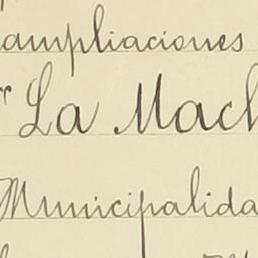 ampliaciones
"La Mach
Municipalida